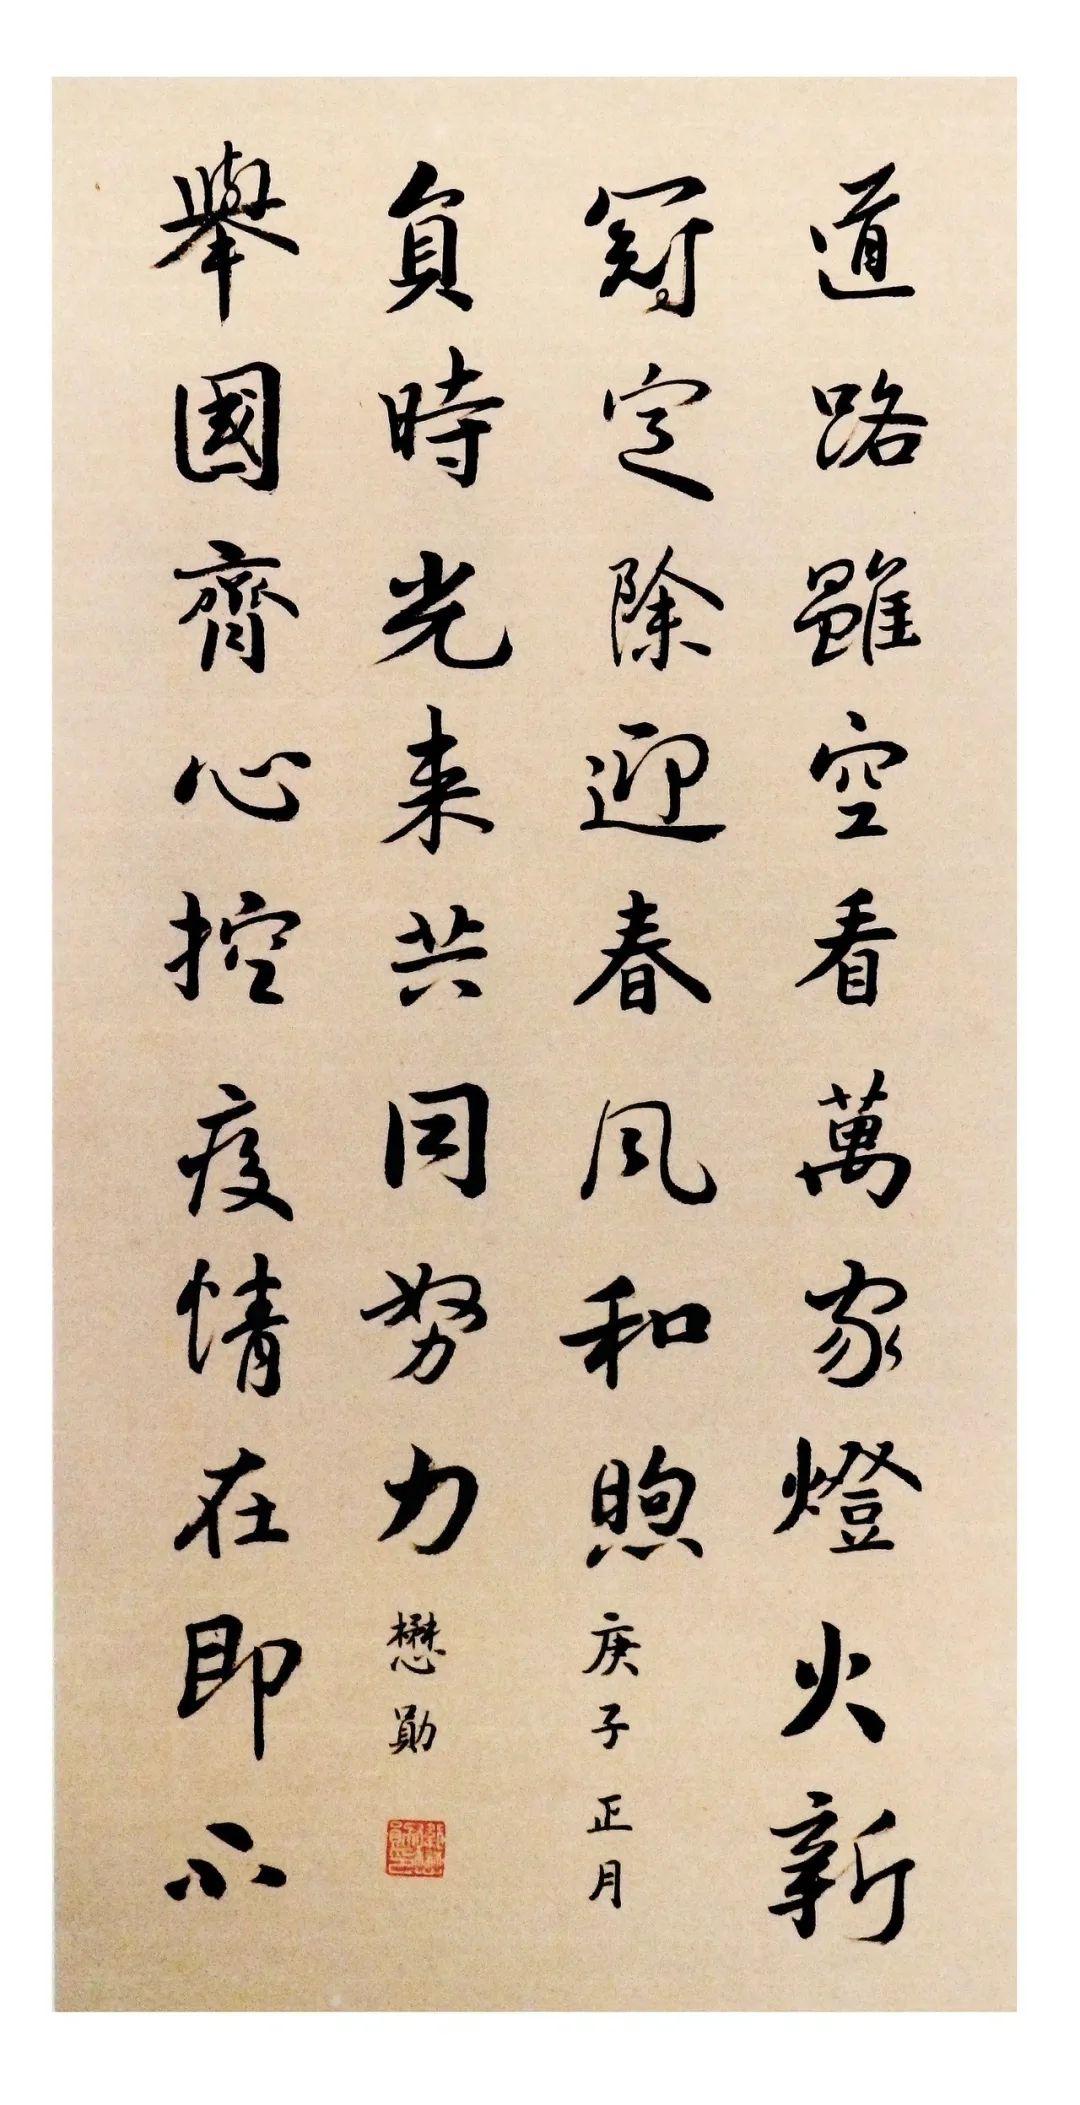 道路雖空看萬家燈火新
冠定除迎春风和煦
庚子正月
舉國齊心控疫情在即不
負時光来共同努力
懋勛